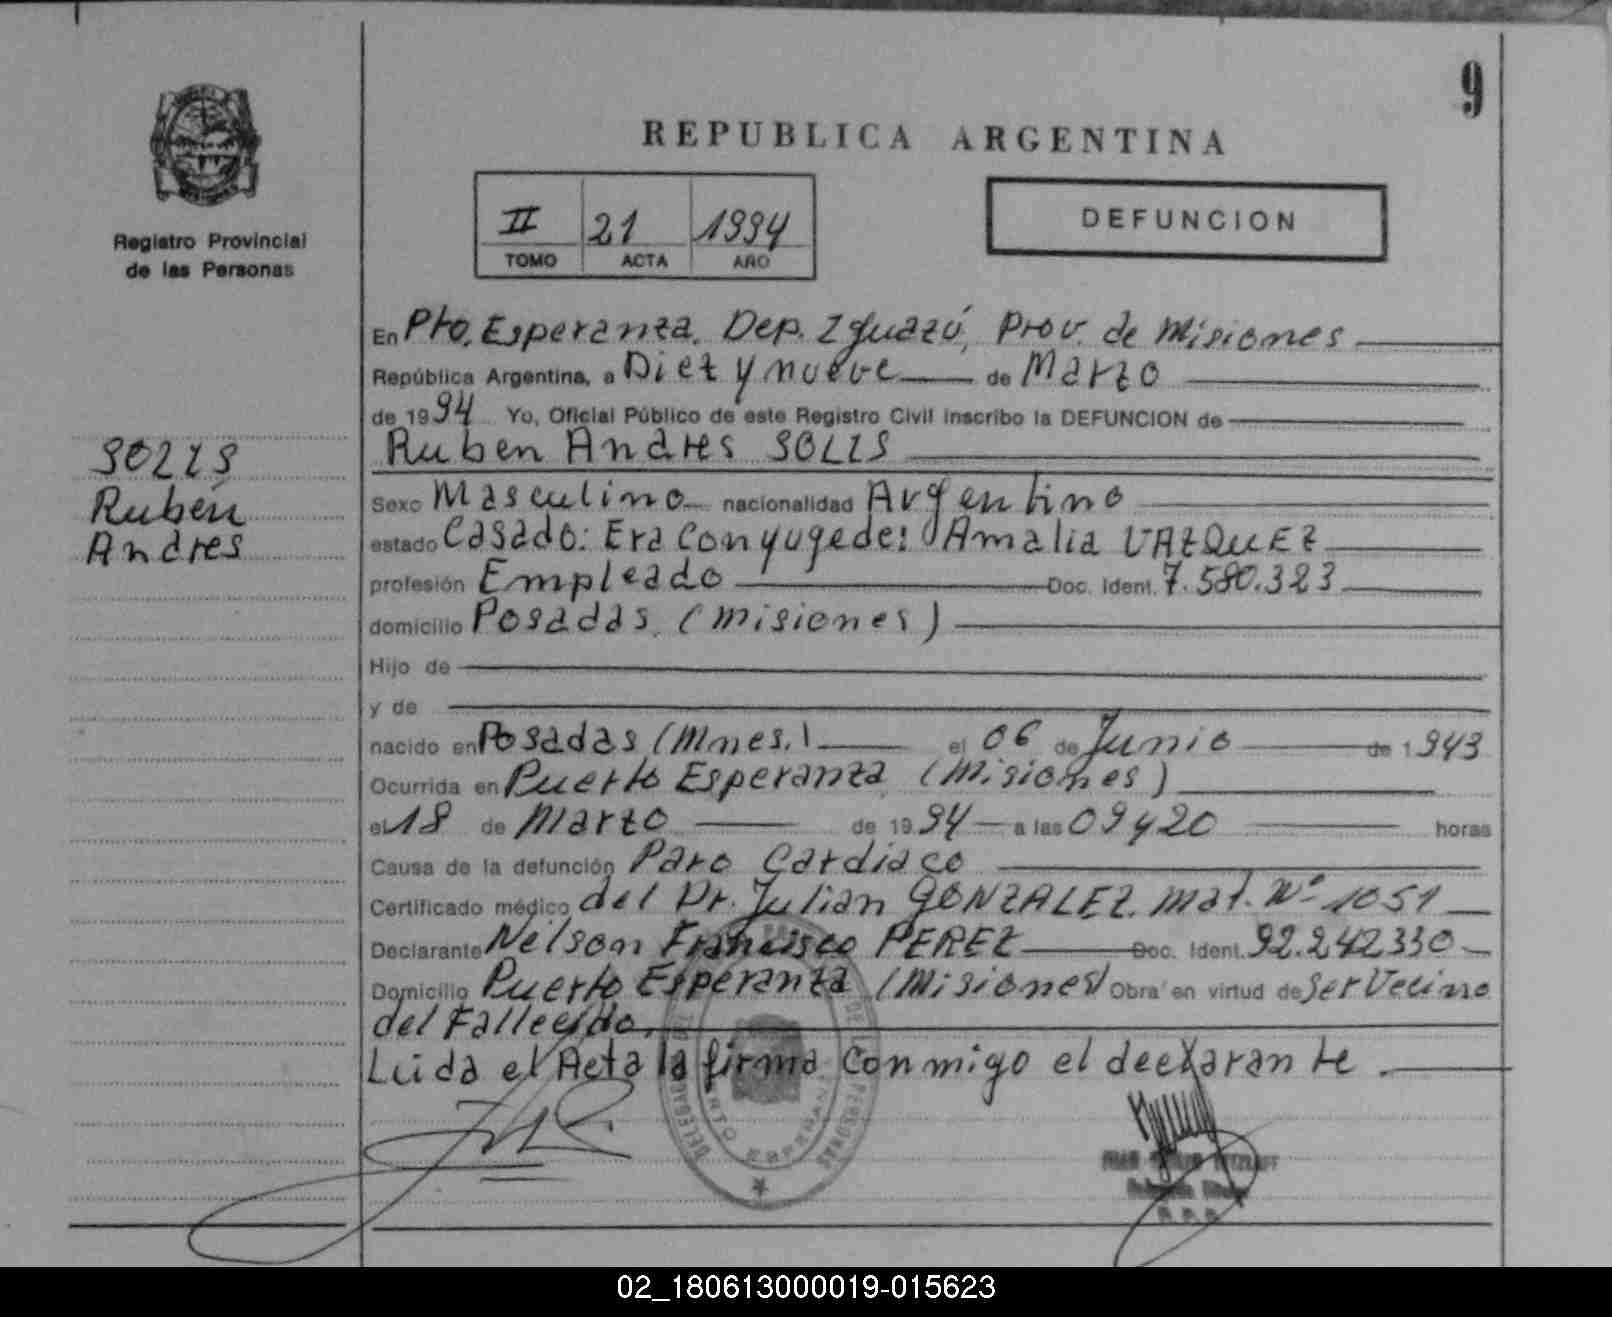 9
REPUBLICA ARGENTINA
II 21 1994
TOMO ACTA AÑO
DEFUNCION
Registro Provincial
de las Personas
SOLIS
Rubén
Andres
En Pto. Esperanza, Dep. Iguazú, Prov. de Misiones
República Argentina, a Diez y nueve de Marzo
de 1994 Yo, Oficial Público de este Registro Civil inscribo la DEFUNCION de
Ruben Andres SOLIS
Sexo Masculino nacionalidad Argentino
estado Casado: Era Conyuge de: Amalia VAZQUEZ
profesión Empleado Doc. Ident. 7.580.323
domicilio Posadas, (Misiones)
Hijo de
y de
nacido en Posadas (Mnes.) el 06 de Junio de 1943
Ocurrida en Puerto Esperanza (Misiones)
el 18 de Marzo de 1994 a las 09 y 20 horas
Causa de la defunción Paro Cardiaco
Certificado médico del Dr. Julian GONZALEZ. Mat. Nº 1051
Declarante Nelson Francisco PEREZ Doc. Ident. 92.242.330
Domicilio Puerto Esperanza (Misiones) Obra en virtud de ser Vecino
del Fallecido.
Leida el Acta la firma conmigo el declarante.
02_180613000019-015623